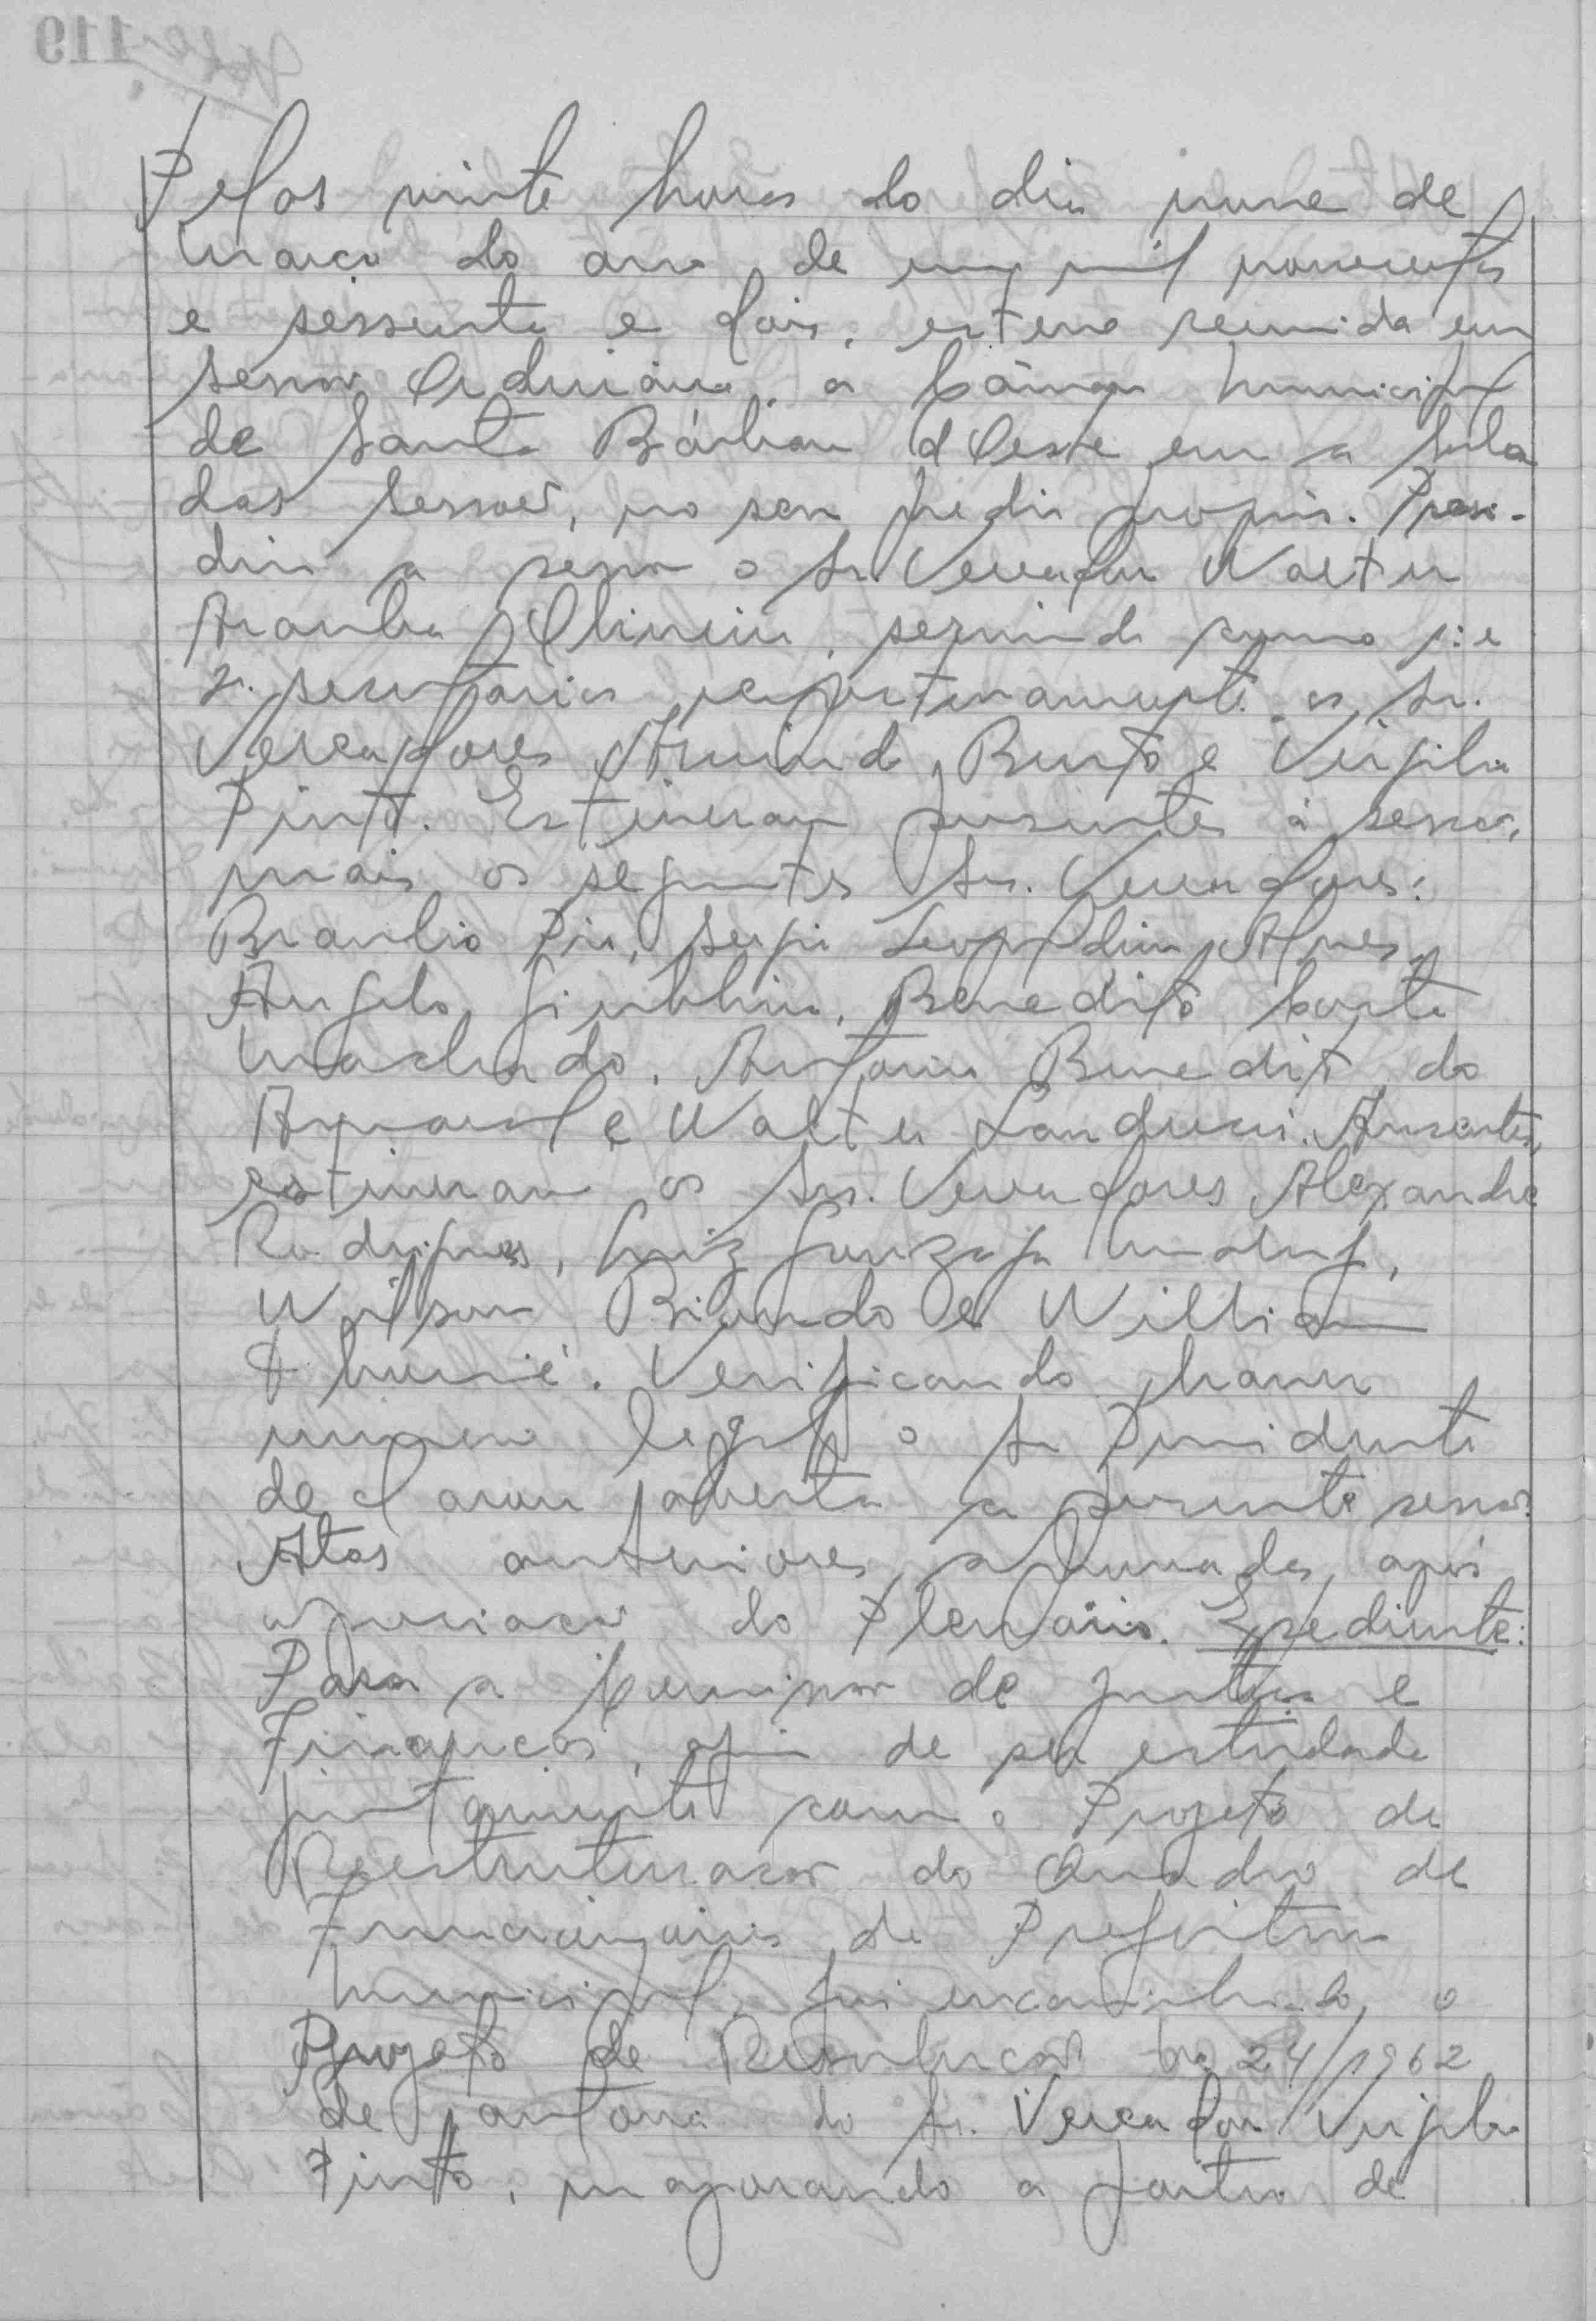 Pelas vinte horas do dia nove de
Março do ano de um mil novecentos
e sessenta e dois, esteve reunida em
sessão Ordinária, a Câmara Municipal
de Santa Bárbara d'Oeste em a sala
das sessões, no seu predio proprio. Presi-
diu a sessão o Sr. Vereador Walter
Aranha Oliveira, servindo como 1º e
2º secretarios respectivamente os Srs.
Vereadores Armindo Bento e Virgilio
Pinto. Estiveram presentes à sessão,
mais os seguintes Srs. Vereadores:
Braulio Pio, Sergio Leopoldino Alves,
Angelo Giubbina, Benedito Costa
Machado, Antonio Benedito do
Amaral e Walter Landucci. Ausentes,
estiveram os Srs. Vereadores Alexandre
Rodrigues, Luiz Gonzaga
Wilson Biondo e Willian
Verificando haver
numero legal o Sr Presidente
declarou aberta a presente sessão.
Atas anteriores aprovadas, após
apreciação do Plenário. Expediente:
Para a Comissão de Justiça e
Finanças, afim de ser estudado
juntamente com o Projeto de
Reestruturação do Quadro de
Funcionarios da Prefeitura
Municipal, foi encaminhado o
Projeto de Resolução no 24/1962
de autoria do Sr. Vereador Virgilio
Pinto, majorando a partir de